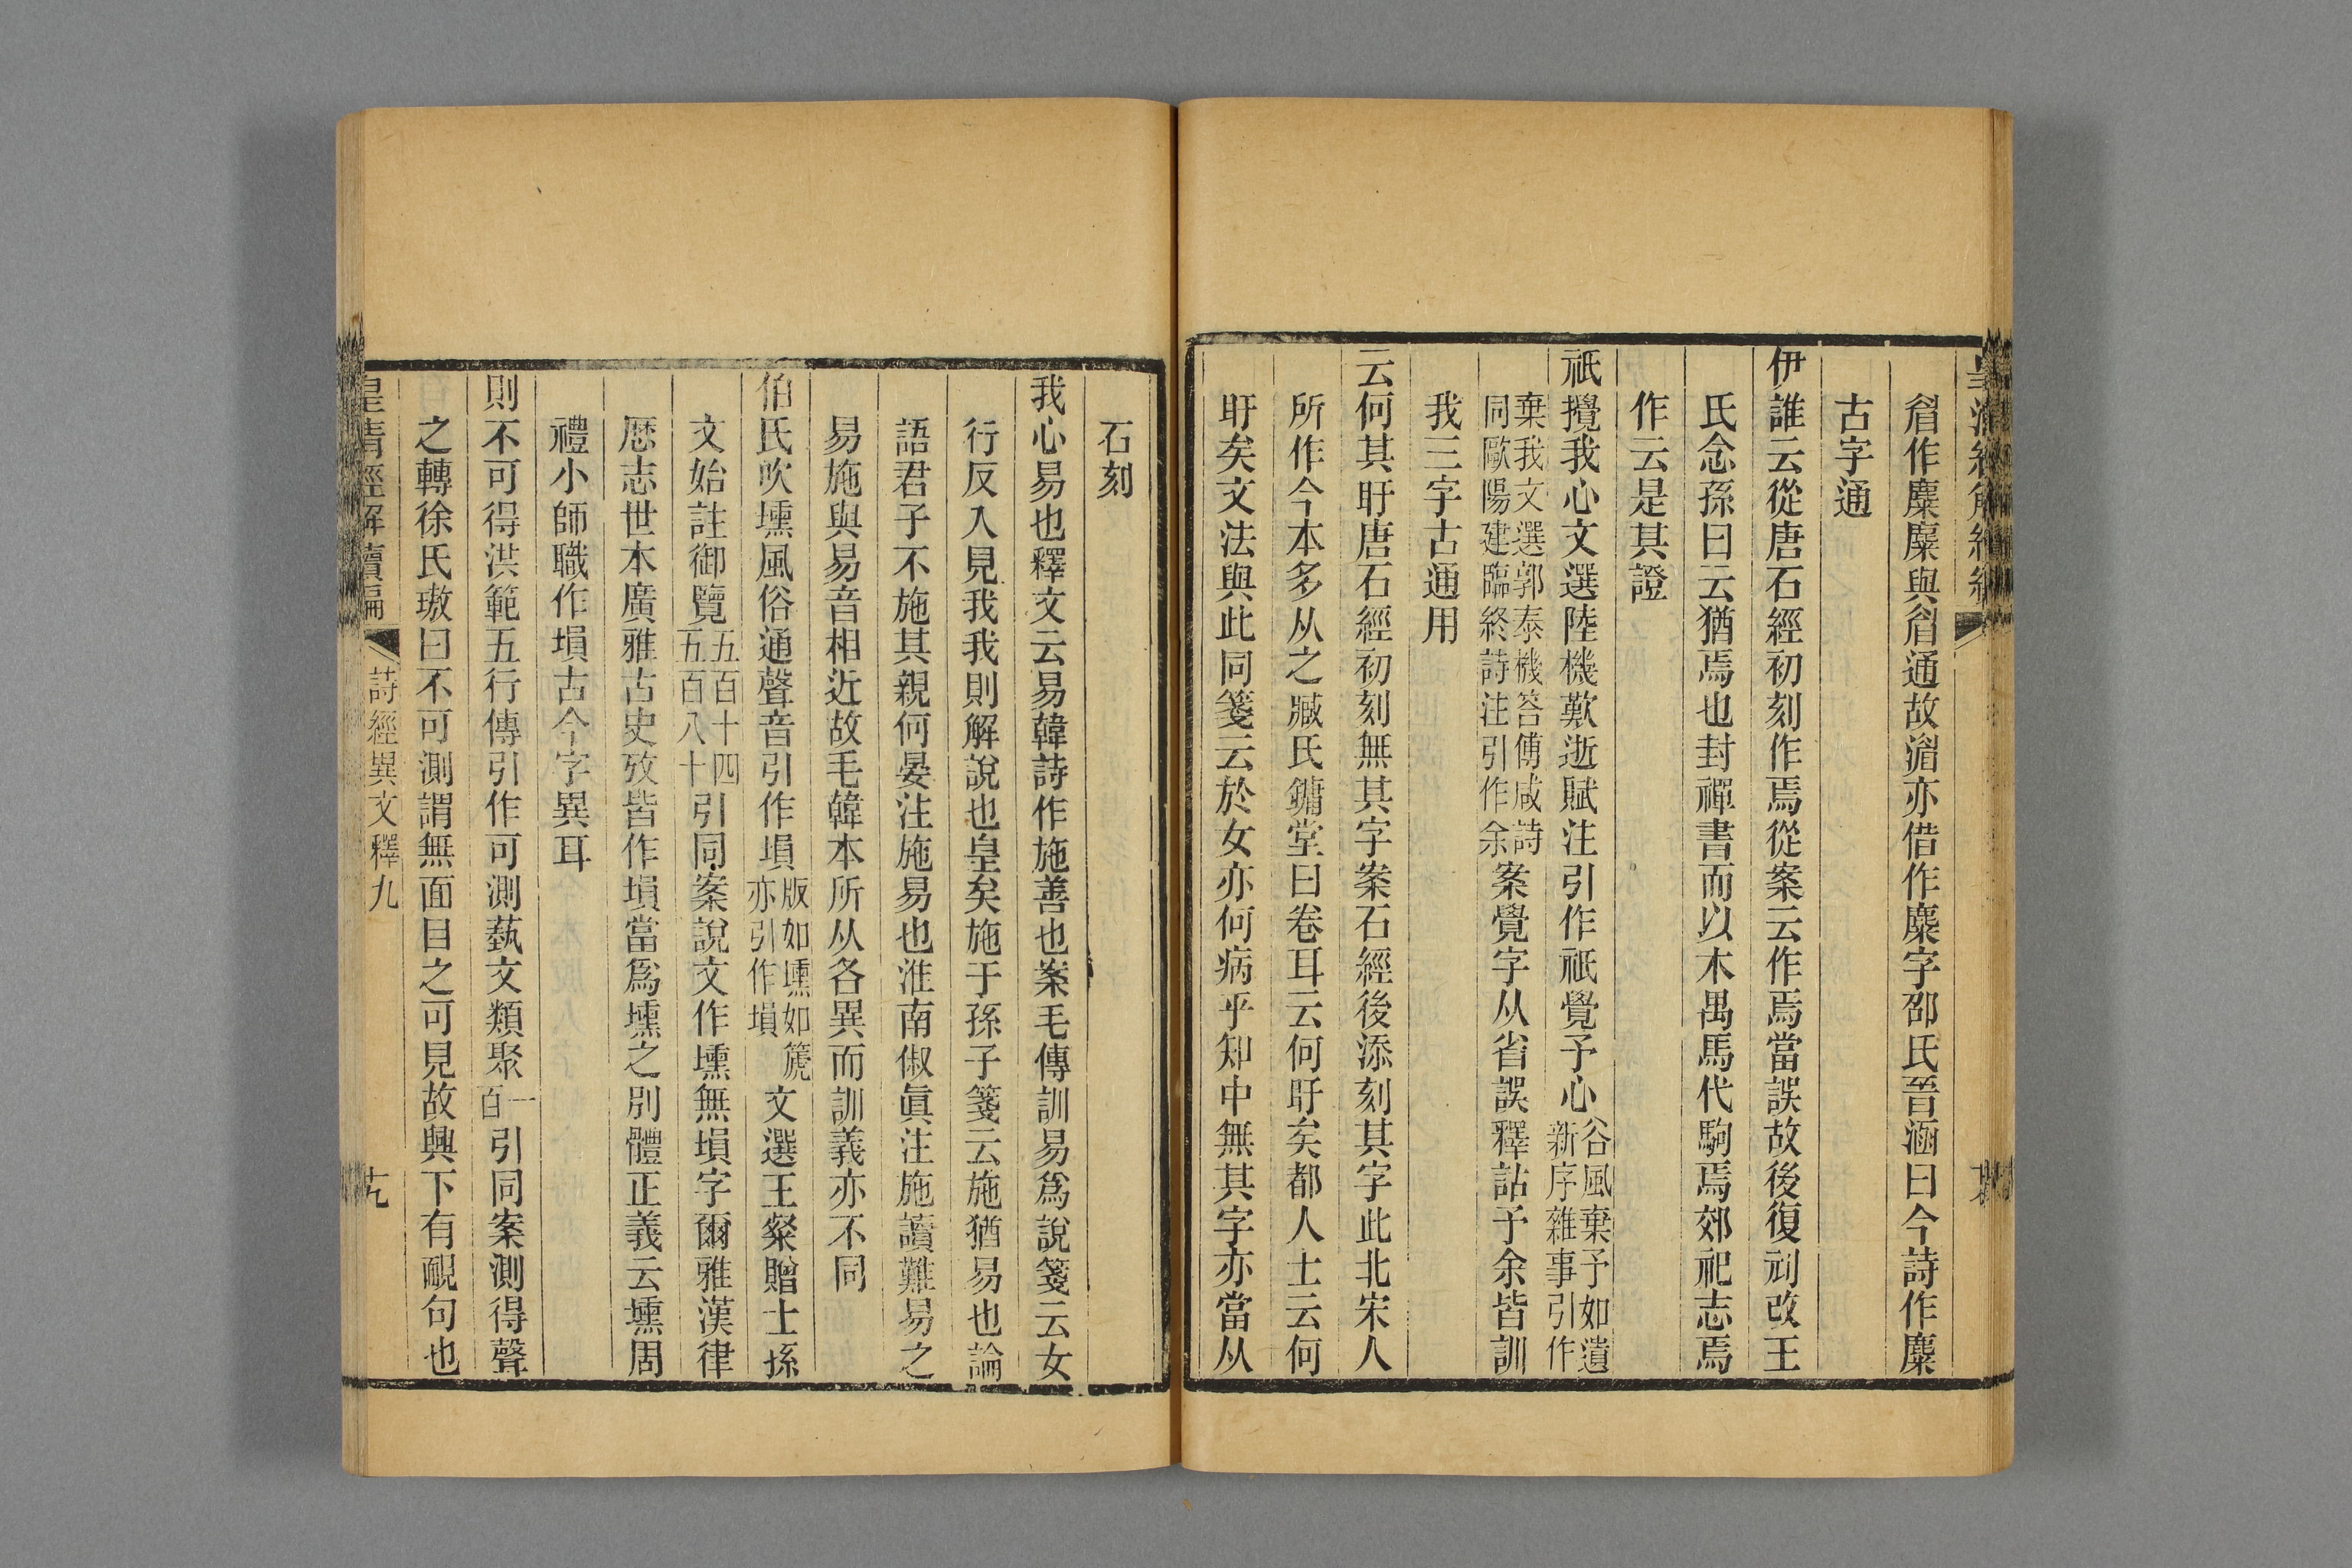 眉作麋麋與眉通故湄亦借作麋字邵氏晉涵曰今詩作麋
古字通
伊誰云從唐石經初刻作焉從案云作焉當誤故後復刓改王
氏念孫曰云猶焉也封禪書而以木禺馬代駒焉郊祀志焉
作云是其證
祇攪我心文選陸機歎逝賦注引作祇覺予心谷風棄予如遺新序雜事引作
棄我文選郭泰機答傅咸詩同歐陽建臨終詩注引作余案覺字从省誤釋詁予余皆訓
我三字古通用
云何其盱唐石經初刻無其字案石經後添刻其字此北宋人
所作今本多从之臧氏鏞堂曰卷耳云何盱矣都人士云何
盱矣文法與此同箋云於女亦何病乎知中無其字亦當从
石刻
我心易也釋文云易韓詩作施善也案毛傳訓易爲說箋云女
行反入見我我則解說也皇矣施于孫子箋云施猶易也論
語君子不施其親何晏注施易也淮南俶眞注施讀難易之
易施與易音相近故毛韓本所从各異而訓義亦不同
伯氏吹壎風俗通聲音引作塤版如壎如篪亦引作塤文選王粲贈士孫
文始註御覽五百十四五百八十引同案說文作壎無塤字爾雅漢律
厯志世本廣雅古史攷皆作塤當爲壎之別體正義云壎周
禮小師職作塤古今字異耳
則不可得洪範五行傳引作可測蓺文類聚一百引同案測得聲
之轉徐氏璈曰不可測謂無面目之可見故興下有靦句也
皇清經解續編
詩經異文釋九
十九